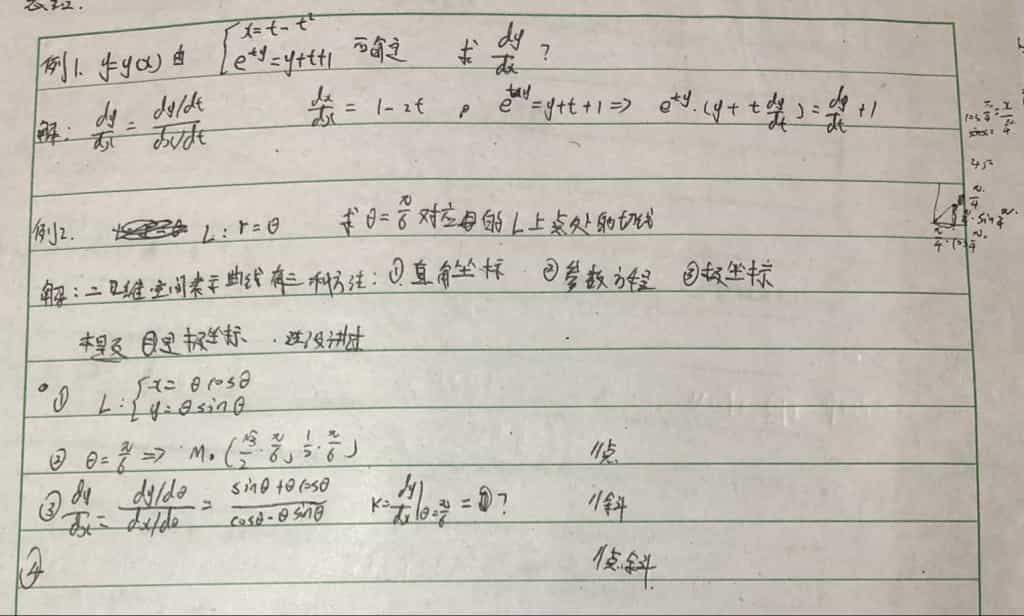 例1. y=y(x) 由 { x=t-t² e^{ty}=y+t+1 可确定 求 dy/dx ?
解: dy/dx = (dy/dt)/(dx/dt) dx/dx = 1-2t , e^{ty}=y+t+1 => e^{ty}·(y+t dy/dt)=dy/dt+1
例2. L: r=θ 求 θ=π/6 对应的 L 上点处的切线
解: 二维空间表示曲线有三种方法: ①直角坐标 ②参数方程 ③极坐标
本题 是极坐标.
① L: { x= θcosθ y=θsinθ
② θ=π/6 => M₀ (√3/2·π/6, 1/2·π/6) //点
③ dy/dx = (dy/dθ)/(dx/dθ) = (sinθ+θcosθ)/(cosθ-θsinθ) K=dy/dx|θ=π/6 = ? //斜
④ //点斜